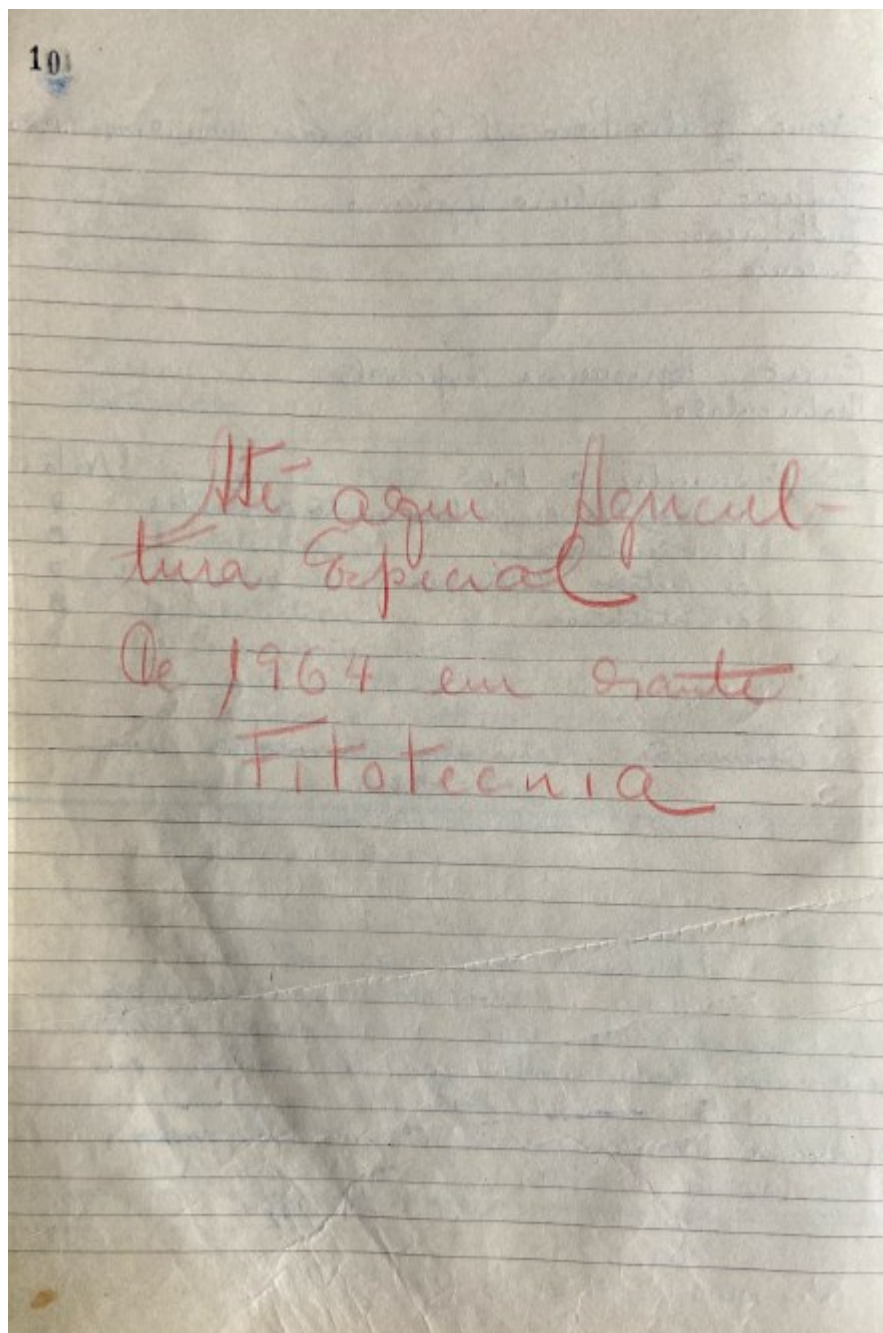 101
Até aqui Agricul-
tura Especial
De 1964 em diante
Fitotecnia